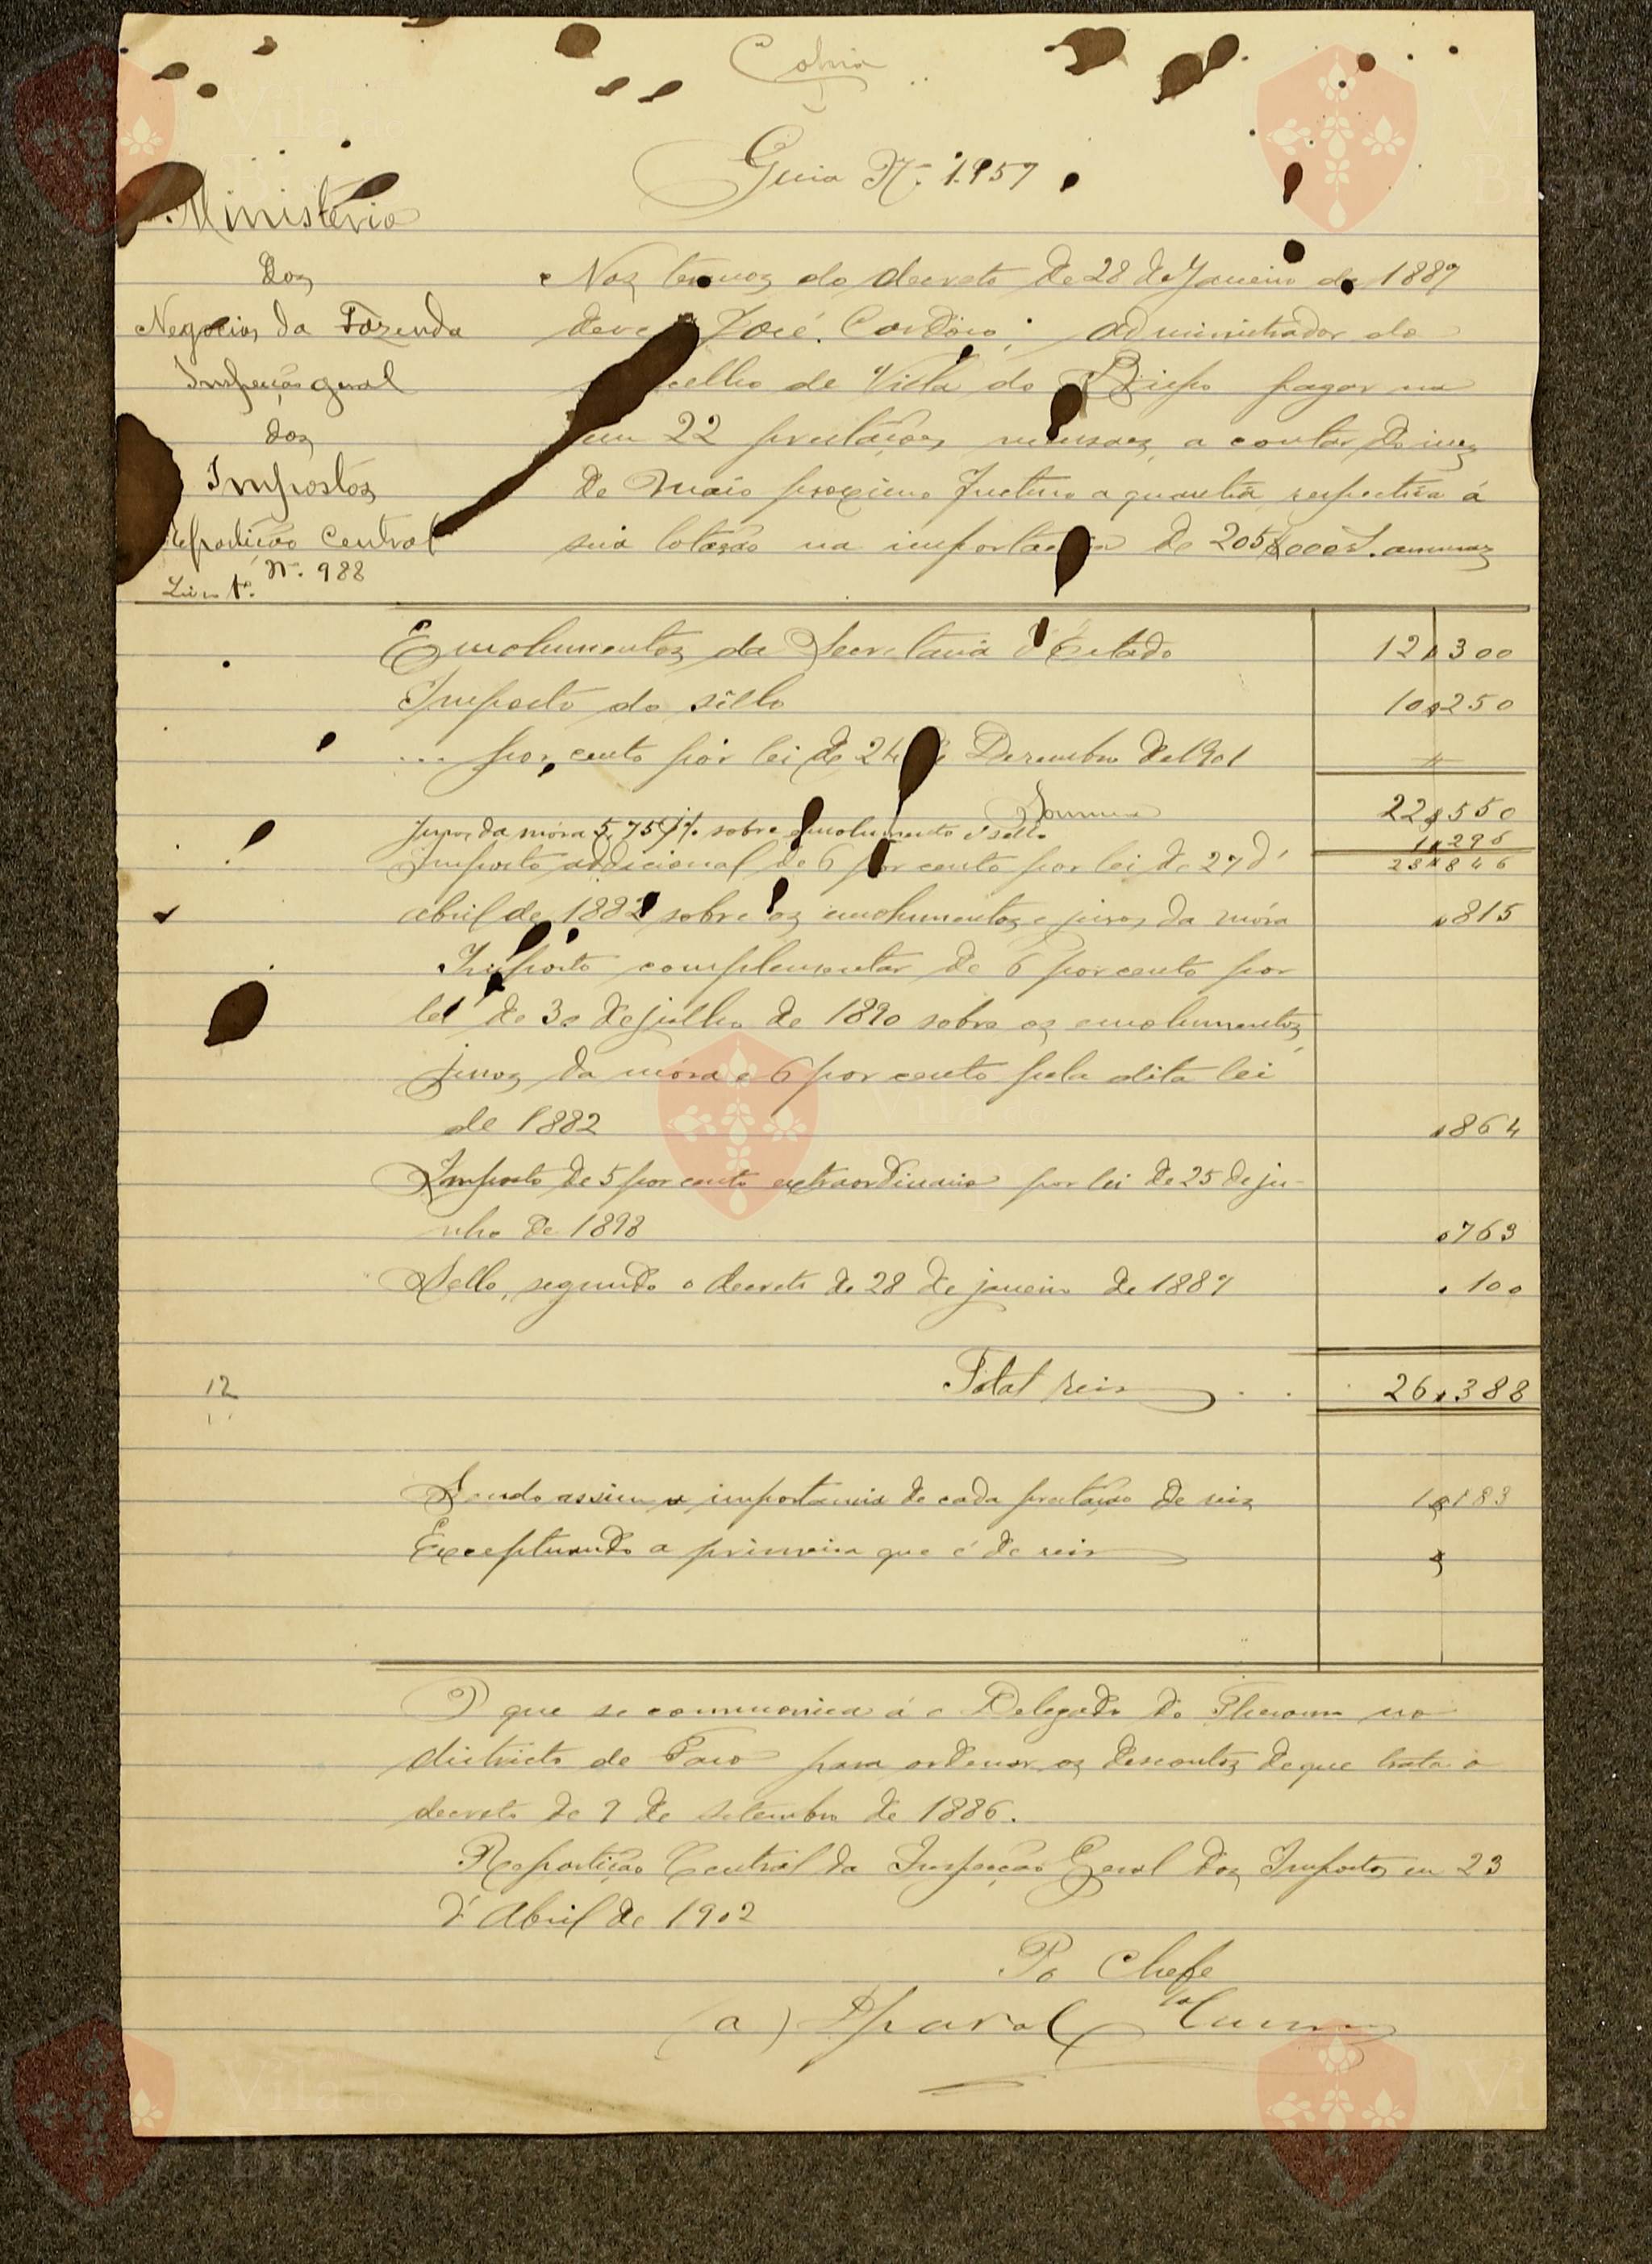 Copia
Guia Nº. 1.957
Ministerio
dos
Negocios da Fazenda
Inspeção geral
dos
Impostos
Repartição Central
Livro 1º. Nº. 988
Nos termos do decreto de 28 de Janeiro de 1887
deve José Cardoso, administrador do
concelho de Villa do Bispo pagar na
em 22 prestações mensaes, a contar do mez
de Maio proximo futuro a quantia respectiva á
sua lotação na importancia de 205$000 rs. annuaes
Emolumentos da Secretaria d'Estado 12$300
Imposto do sêllo 10$250
... por cento por lei de 24 de Dezembro de 1901 #
Somma 22$550
Juros da móra 5,75% sobre emolumento e sello 1$296
23$846
Imposto addicional de 6 por cento por lei de 27 d'
abril de 1882 sobre os emolumentos e juros da móra $815
Imposto complementar de 6 por cento por
lei de 30 de julho de 1890 sobre os emolumentos,
juros da móra e 6 por cento pela dita lei
de 1882 $864
Imposto de 5 por cento extraordinario por lei de 25 de ju-
nho de 1898 $763
Sello, segundo o decreto de 28 de janeiro de 1887 $100
Total reis 26$388
12
Sendo assim a importancia de cada prestação de reis 1$183
Exceptuando a primeira que é de reis $
O que se communica á o Delegado do Thesouro no
districto de Faro para ordenar os descontos de que trata o
decreto de 9 de setembro de 1886.
Repartição Central da Inspecção Geral dos Impostos em 23
d'Abril de 1902
Pº Chefe
(a)
Vila do
Bispo